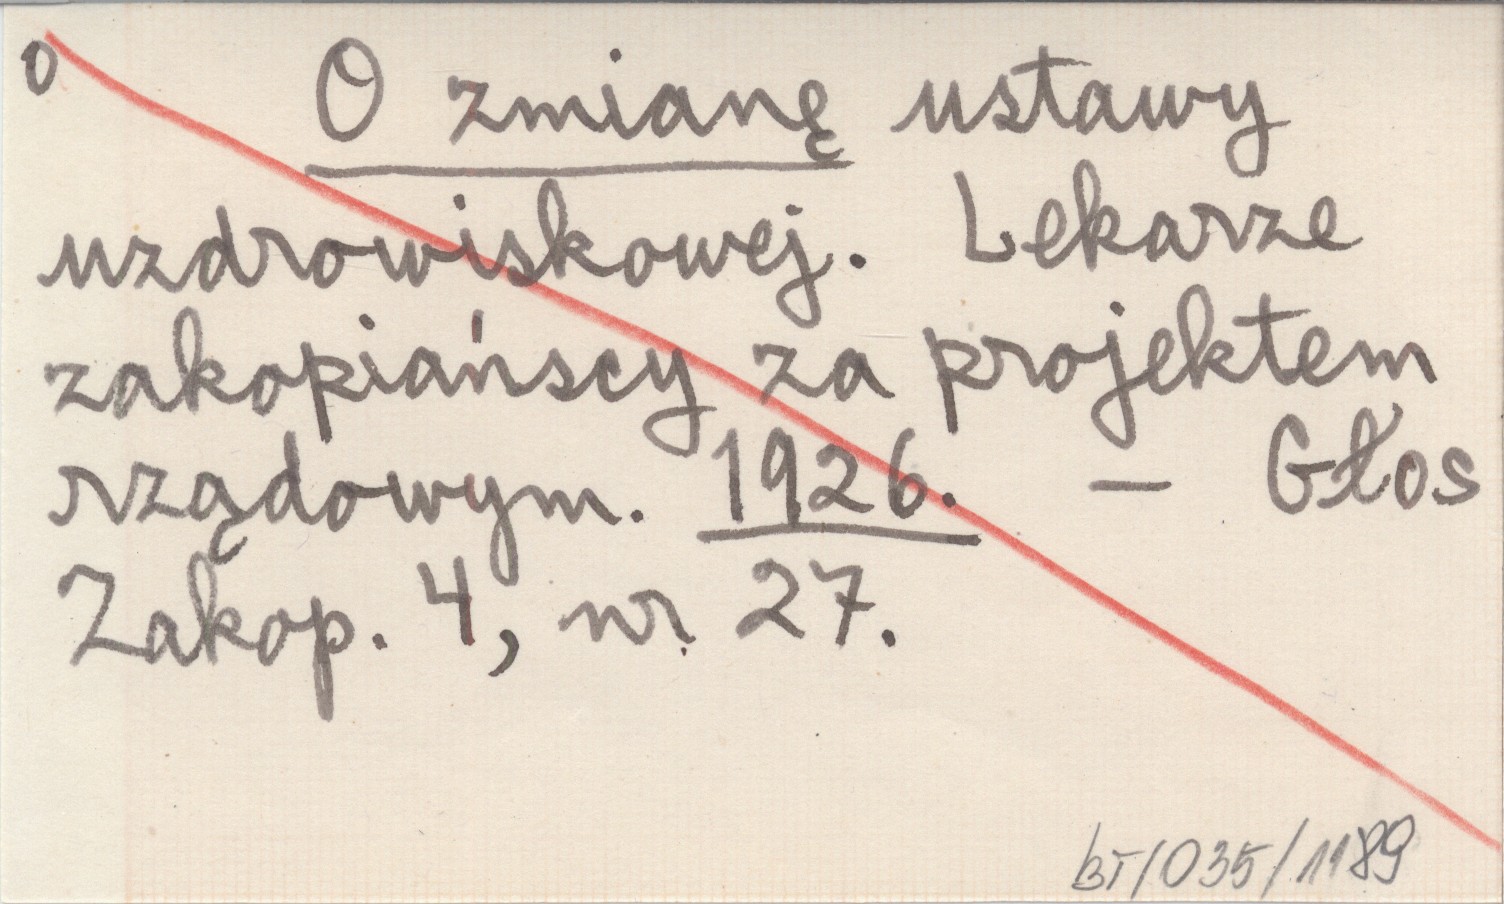 0
O zmianę ustawy
uzdrowiskowej. Lekarze
zakopiańscy za projektem
rządowym. 1926. — Głos
Zakop. 4, nr 27.
BT/035/1189